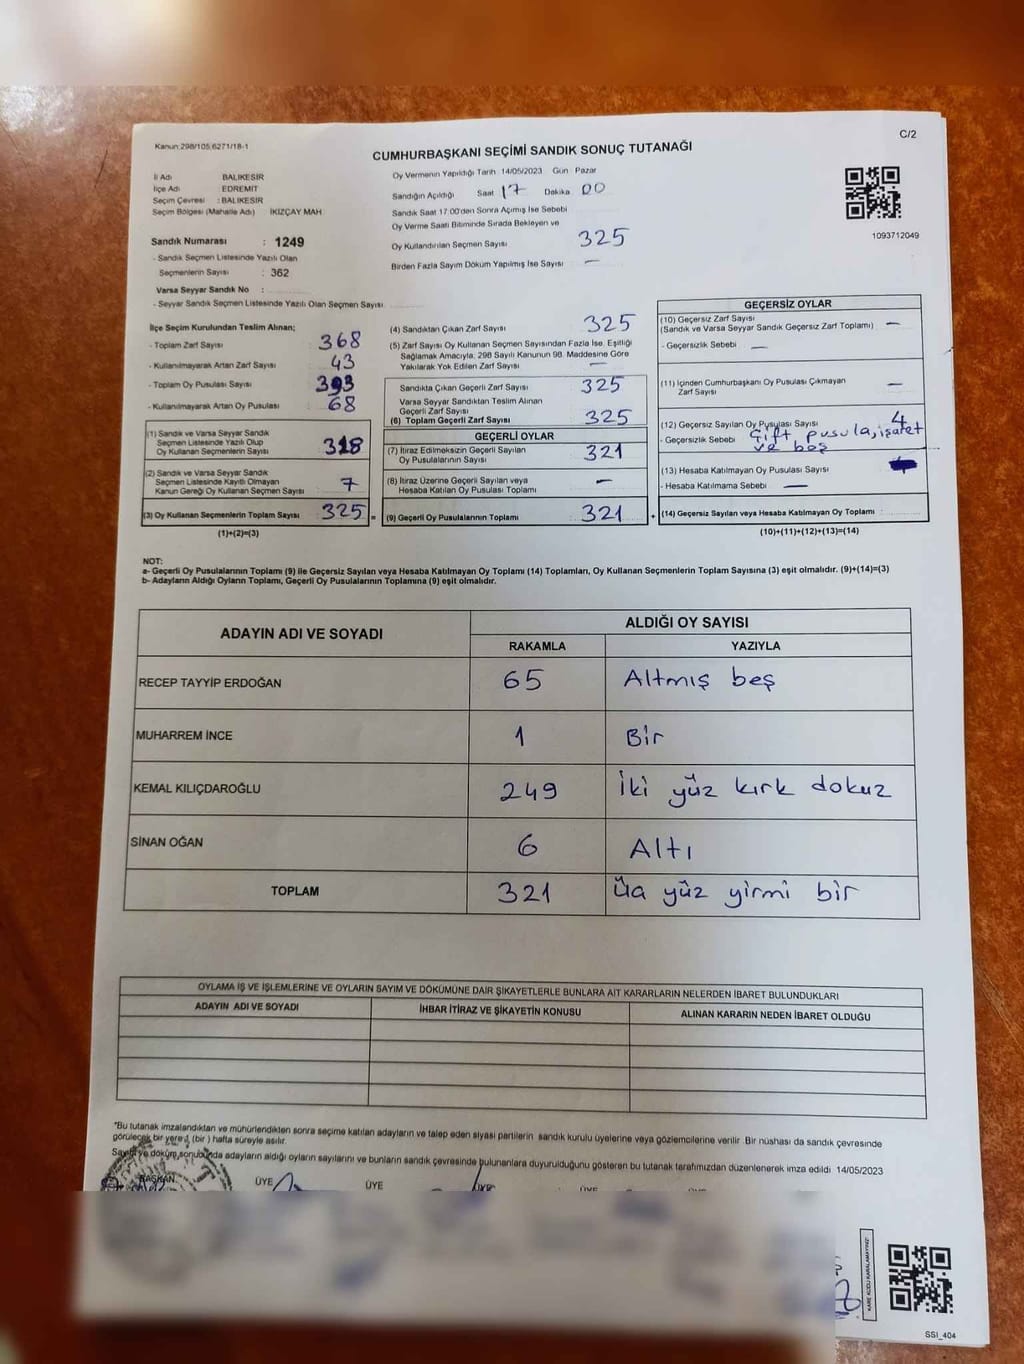 Kanun:298/105,6271/18-1
C/2
CUMHURBAŞKANI SEÇİMİ SANDIK SONUÇ TUTANAĞI
İl Adı BALIKESİR
İlçe Adı EDREMİT
Seçim Çevresi : BALIKESİR
Seçim Bölgesi (Mahalle Adı) İKİZÇAY MAH
Sandık Numarası : 1249
- Sandık Seçmen Listesinde Yazılı Olan
Seçmenlerin Sayısı : 362
Varsa Seyyar Sandık No :
- Seyyar Sandık Seçmen Listesinde Yazılı Olan Seçmen Sayısı
Oy Vermenin Yapıldığı Tarih 14/05/2023 Gün Pazar
Sandığın Açıldığı Saat 17 Dakika 00
Sandık Saat 17:00'den Sonra Açımış İse Sebebi
Oy Verme Saati Bitiminde Sırada Bekleyen ve
Oy Kullandırılan Seçmen Sayısı 325
Birden Fazla Sayım Döküm Yapılmış İse Sayısı —
1093712049
İlçe Seçim Kurulundan Teslim Alınan;
- Toplam Zarf Sayısı 368
- Kullanılmayarak Artan Zarf Sayısı 43
- Toplam Oy Pusulası Sayısı 393
- Kullanılmayarak Artan Oy Pusulası 68
(1) Sandık ve Varsa Seyyar Sandık
Seçmen Listesinde Yazılı Olup
Oy Kullanan Seçmenlerin Sayısı 318
(2) Sandık ve Varsa Seyyar Sandık
Seçmen Listesinde Kayıtlı Olmayan
Kanun Gereği Oy Kullanan Seçmen Sayısı 7
(3) Oy Kullanan Seçmenlerin Toplam Sayısı 325 =
(1)+(2)=(3)
(4) Sandıktan Çıkan Zarf Sayısı 325
(5) Zarf Sayısı Oy Kullanan Seçmen Sayısından Fazla İse, Eşitliği
Sağlamak Amacıyla, 298 Sayılı Kanunun 98. Maddesine Göre
Yakılarak Yok Edilen Zarf Sayısı —
Sandıkta Çıkan Geçerli Zarf Sayısı 325
Varsa Seyyar Sandıktan Teslim Alınan
Geçerli Zarf Sayısı
(6) Toplam Geçerli Zarf Sayısı 325
GEÇERLİ OYLAR
(7) İtiraz Edilmeksizin Geçerli Sayılan
Oy Pusulalarının Sayısı 321
(8) İtiraz Üzerine Geçerli Sayılan veya
Hesaba Katılan Oy Pusulası Toplamı —
(9) Geçerli Oy Pusulalarının Toplamı 321 +
GEÇERSİZ OYLAR
(10) Geçersiz Zarf Sayısı
(Sandık ve Varsa Seyyar Sandık Geçersiz Zarf Toplamı) —
- Geçersizlik Sebebi —
(11) İçinden Cumhurbaşkanı Oy Pusulası Çıkmayan
Zarf Sayısı —
(12) Geçersiz Sayılan Oy Pusulası Sayısı 4
- Geçersizlik Sebebi Çift pusula, işaret
ve boş
(13) Hesaba Katılmayan Oy Pusulası Sayısı
- Hesaba Katılmama Sebebi —
(14) Geçersiz Sayılan veya Hesaba Katılmayan Oy Toplamı :
(10)+(11)+(12)+(13)=(14)
NOT:
a- Geçerli Oy Pusulalarının Toplamı (9) ile Geçersiz Sayılan veya Hesaba Katılmayan Oy Toplamı (14) Toplamları, Oy Kullanan Seçmenlerin Toplam Sayısına (3) eşit olmalıdır. (9)+(14)=(3)
b- Adayların Aldığı Oyların Toplamı, Geçerli Oy Pusulalarının Toplamına (9) eşit olmalıdır.
ADAYIN ADI VE SOYADI
ALDIĞI OY SAYISI
RAKAMLA YAZIYLA
RECEP TAYYİP ERDOĞAN 65 Altmış beş
MUHARREM İNCE 1 Bir
KEMAL KILIÇDAROĞLU 249 İki yüz kırk dokuz
SİNAN OĞAN 6 Altı
TOPLAM 321 Üa yüz yirmi bir
OYLAMA İŞ VE İŞLEMLERİNE VE OYLARIN SAYIM VE DÖKÜMÜNE DAİR ŞİKAYETLERLE BUNLARA AİT KARARLARIN NELERDEN İBARET BULUNDUKLARI
ADAYIN ADI VE SOYADI İHBAR İTİRAZ VE ŞİKAYETİN KONUSU ALINAN KARARIN NEDEN İBARET OLDUĞU
*Bu tutanak imzalandıktan ve mühürlendikten sonra seçime katılan adayların ve talep eden siyasi partilerin sandık kurulu üyelerine veya gözlemcilerine verilir. Bir nüshası da sandık çevresinde
görülecek bir yere 1 (bir) hafta süreyle asılır.
Sayım ve döküm sonucunda adayların aldığı oyların sayılarını ve bunların sandık çevresinde bulunanlara duyurulduğunu gösteren bu tutanak tarafımızdan düzenlenerek imza edildi 14/05/2023
BAŞKAN ÜYE ÜYE ÜYE ÜYE ÜYE
"KARE KODU KARALAMAYINIZ"
SSI_404